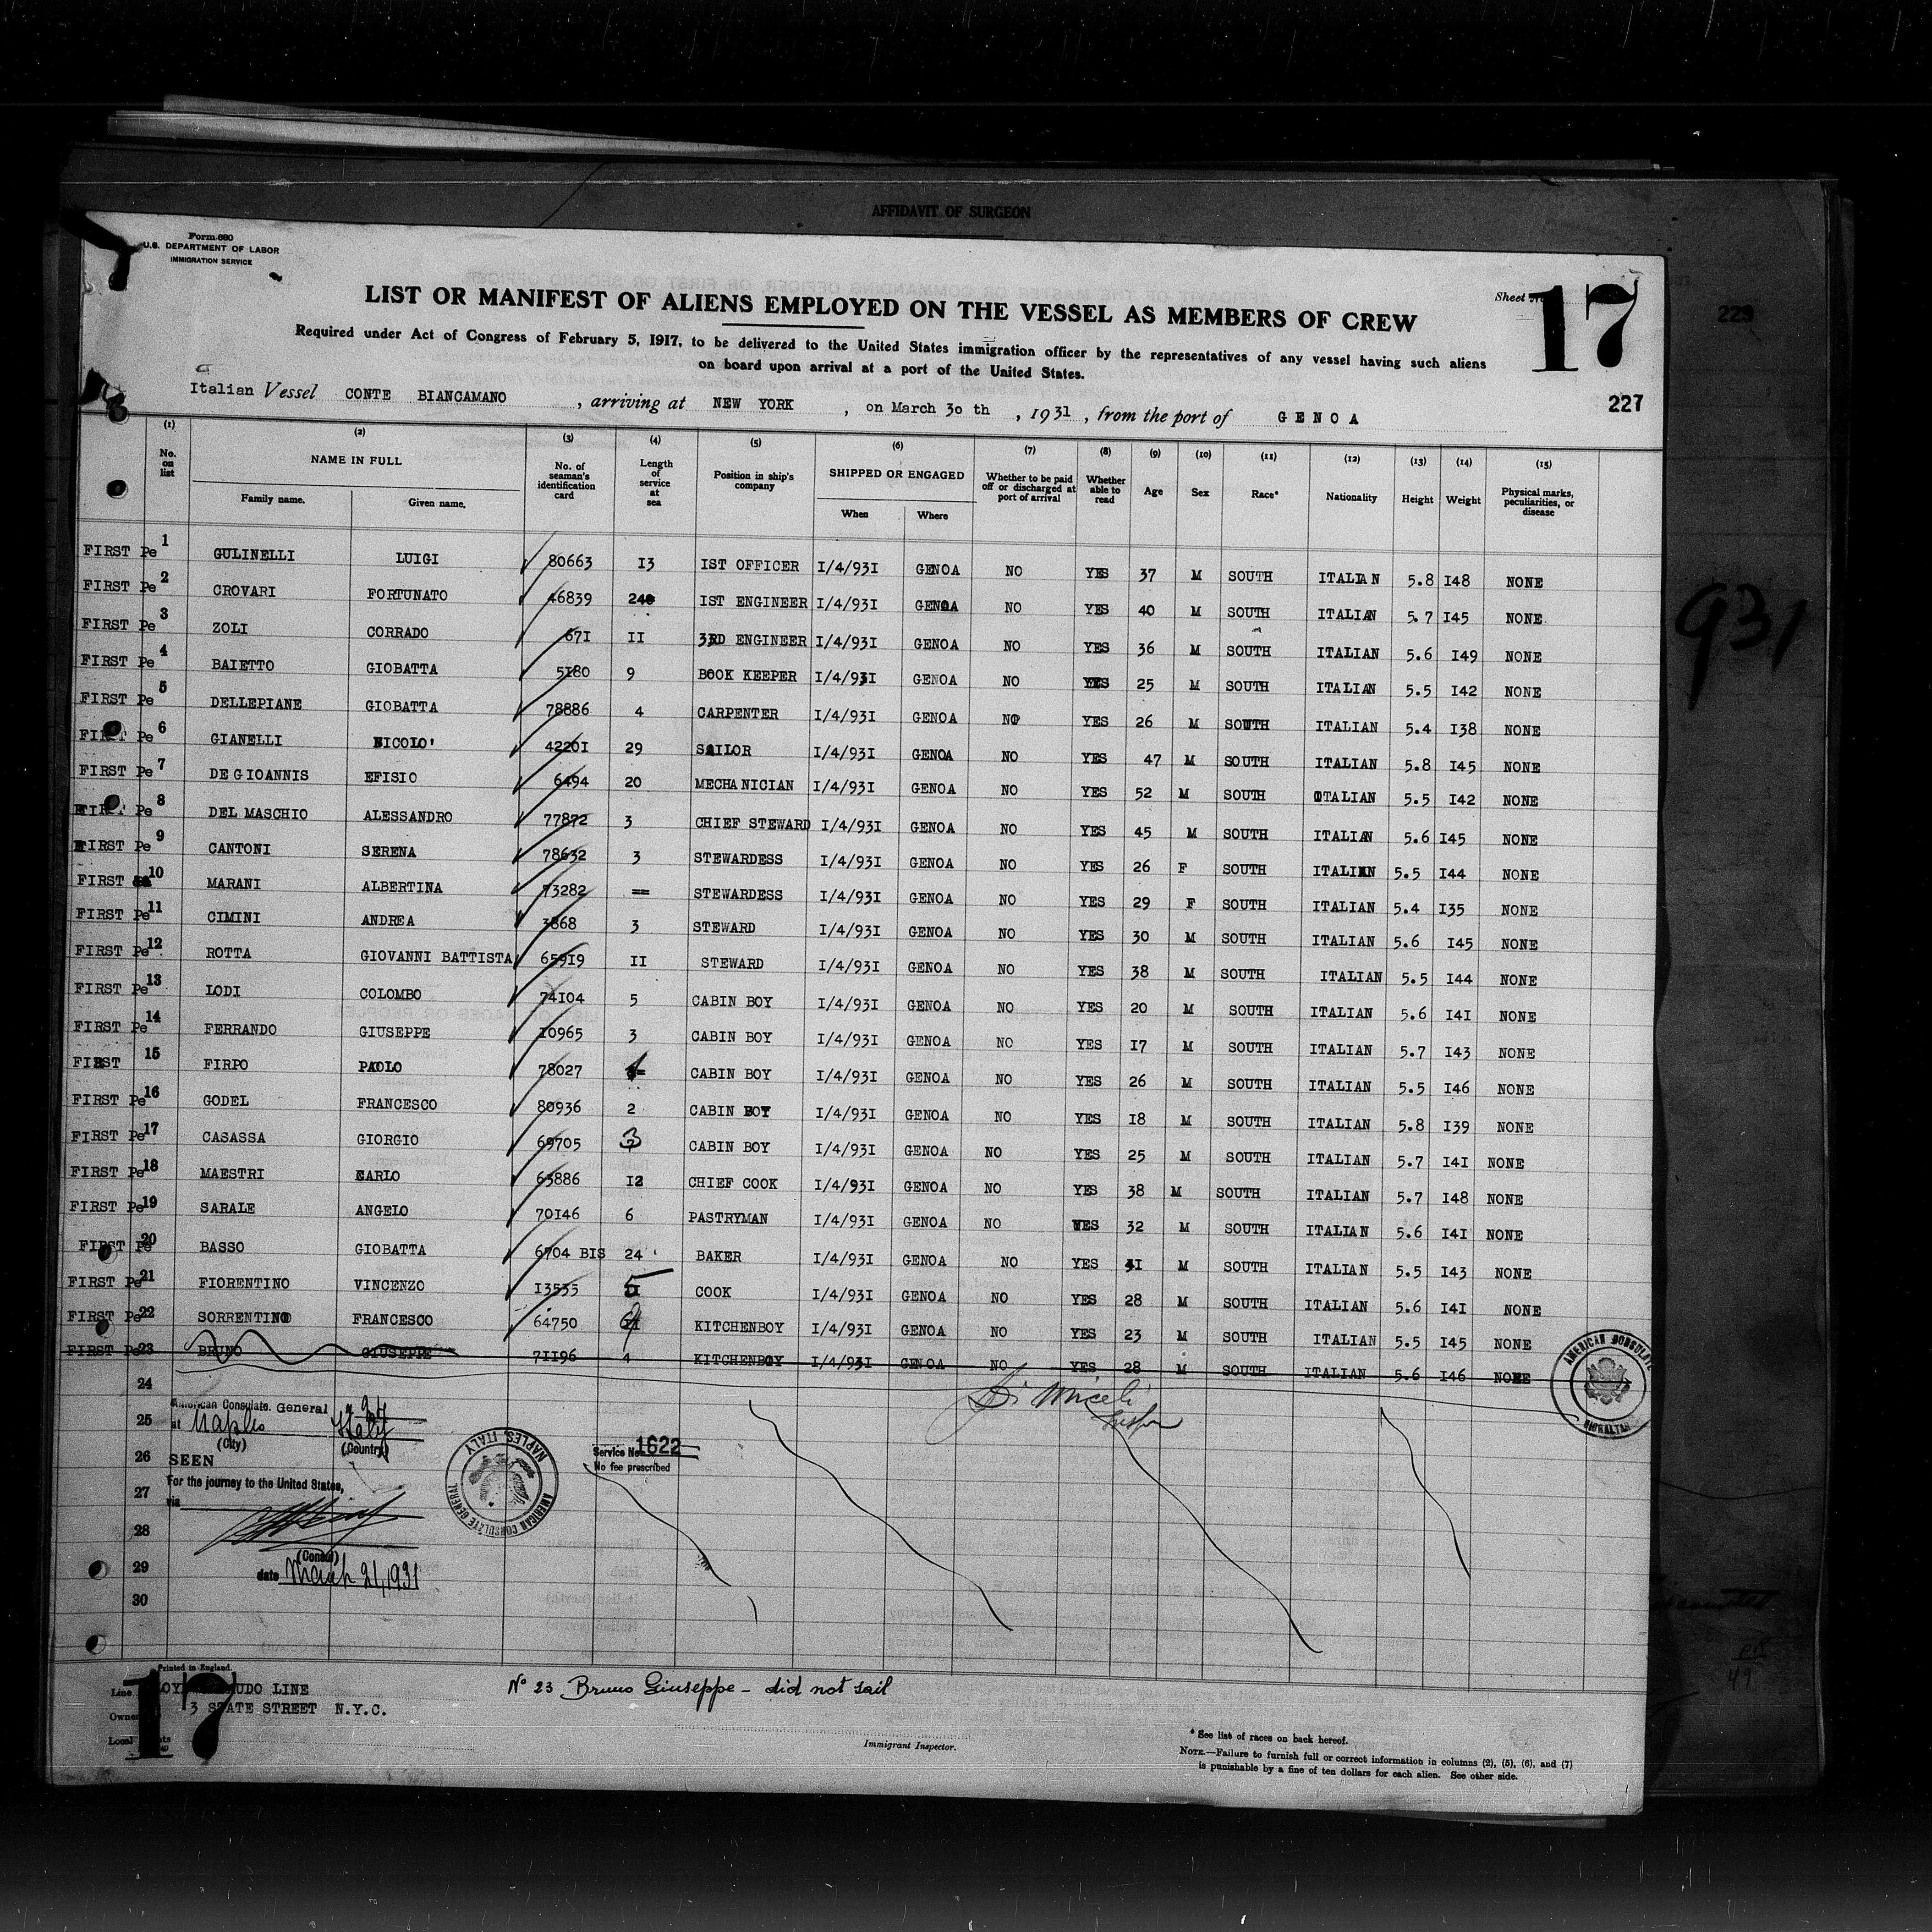 AFFIDAVIT OF SURGEON
Form 680
U.S. DEPARTMENT OF LABOR
IMMIGRATION SERVICE
LIST OR MANIFEST OF ALIENS EMPLOYED ON THE VESSEL AS MEMBERS OF CREW
Sheet No.
17
Required under Act of Congress of February 5, 1917, to be delivered to the United States immigration officer by the representatives of any vessel having such aliens
on board upon arrival at a port of the United States.
Italian Vessel CONTE BIANCAMANO, arriving at NEW YORK, on March 30 th, 1931, from the port of GENOA
227
229
931
(1) (2) (3) (4) (5) (6) (7) (8) (9) (10) (11) (12) (13) (14) (15)
No. on list NAME IN FULL No. of seaman's identification card Length of service at sea Position in ship's company SHIPPED OR ENGAGED Whether to be paid off or discharged at port of arrival Whether able to read Age Sex Race* Nationality Height Weight Physical marks, peculiarities, or disease
Family name. Given name. When Where
FIRST Pe 1 GULINELLI LUIGI 80663 I3 IST OFFICER I/4/93I GENOA NO YES 37 M SOUTH ITALIAN 5.8 I48 NONE
FIRST Pe 2 CROVARI FORTUNATO 46839 24 IST ENGINEER I/4/93I GENOA NO YES 40 M SOUTH ITALIAN 5.7 I45 NONE
FIRST Pe 3 ZOLI CORRADO 67I II 3RD ENGINEER I/4/93I GENOA NO YES 36 M SOUTH ITALIAN 5.6 I49 NONE
FIRST Pe 4 BAIETTO GIOBATTA 5I80 9 BOOK KEEPER I/4/93I GENOA NO YES 25 M SOUTH ITALIAN 5.5 I42 NONE
FIRST Pe 5 DELLEPIANE GIOBATTA 78886 4 CARPENTER I/4/93I GENOA NO YES 26 M SOUTH ITALIAN 5.4 I38 NONE
FIRST Pe 6 GIANELLI NICOLO' 4220I 29 SAILOR I/4/93I GENOA NO YES 47 M SOUTH ITALIAN 5.8 I45 NONE
FIRST Pe 7 DE GIOANNIS EFISIO 6494 20 MECHANICIAN I/4/93I GENOA NO YES 52 M SOUTH ITALIAN 5.5 I42 NONE
FIRST Pe 8 DEL MASCHIO ALESSANDRO 77872 3 CHIEF STEWARD I/4/93I GENOA NO YES 45 M SOUTH ITALIAN 5.6 I45 NONE
FIRST Pe 9 CANTONI SERENA 78632 3 STEWARDESS I/4/93I GENOA NO YES 26 F SOUTH ITALIAN 5.5 I44 NONE
FIRST 10 MARANI ALBERTINA 73282 == STEWARDESS I/4/93I GENOA NO YES 29 F SOUTH ITALIAN 5.4 I35 NONE
FIRST Pe 11 CIMINI ANDREA 3868 3 STEWARD I/4/93I GENOA NO YES 30 M SOUTH ITALIAN 5.6 I45 NONE
FIRST Pe 12 ROTTA GIOVANNI BATTISTA 659I9 II STEWARD I/4/93I GENOA NO YES 38 M SOUTH ITALIAN 5.5 I44 NONE
FIRST Pe 13 LODI COLOMBO 74I04 5 CABIN BOY I/4/93I GENOA NO YES 20 M SOUTH ITALIAN 5.6 I4I NONE
FIRST Pe 14 FERRANDO GIUSEPPE I0965 3 CABIN BOY I/4/93I GENOA NO YES I7 M SOUTH ITALIAN 5.7 I43 NONE
FIRST 15 FIRPO PAOLO 78027 CABIN BOY I/4/93I GENOA NO YES 26 M SOUTH ITALIAN 5.5 I46 NONE
FIRST Pe 16 GODEL FRANCESCO 80936 2 CABIN BOY I/4/93I GENOA NO YES I8 M SOUTH ITALIAN 5.8 I39 NONE
FIRST Pe 17 CASASSA GIORGIO 69705 3 CABIN BOY I/4/93I GENOA NO YES 25 M SOUTH ITALIAN 5.7 I4I NONE
FIRST Pe 18 MAESTRI CARLO 63886 I2 CHIEF COOK I/4/93I GENOA NO YES 38 M SOUTH ITALIAN 5.7 I48 NONE
FIRST Pe 19 SARALE ANGELO 70I46 6 PASTRYMAN I/4/93I GENOA NO YES 32 M SOUTH ITALIAN 5.6 I4I NONE
FIRST Pe 20 BASSO GIOBATTA 6704 BIS 24 BAKER I/4/93I GENOA NO YES 4I M SOUTH ITALIAN 5.5 I43 NONE
FIRST Pe 21 FIORENTINO VINCENZO I3535 5 COOK I/4/93I GENOA NO YES 28 M SOUTH ITALIAN 5.6 I4I NONE
FIRST Pe 22 SORRENTINO FRANCESCO 64750 KITCHENBOY I/4/93I GENOA NO YES 23 M SOUTH ITALIAN 5.5 I45 NONE
FIRST Pe 23 BRUNO GIUSEPPE 7II96 4 KITCHENBOY I/4/93I GENOA NO YES 28 M SOUTH ITALIAN 5.6 I46 NONE
24
25
26
27
28
29
30
American Consulate General
at Naples Italy
(City) (Country)
SEEN
For the journey to the United States,
via
(Consul)
date March 21, 1931
AMERICAN CONSULATE GENERAL NAPLES, ITALY
Service No. 1622
No fee prescribed
Di Miceli
AMERICAN CONSULATE GIBRALTAR
Printed in England.
17
Line LINE
Owner 3 STATE STREET N.Y.C.
Local
No 23 Bruno Giuseppe - did not sail
Immigrant Inspector.
* See list of races on back hereof.
NOTE.—Failure to furnish full or correct information in columns (2), (5), (6), and (7)
is punishable by a fine of ten dollars for each alien. See other side.
49